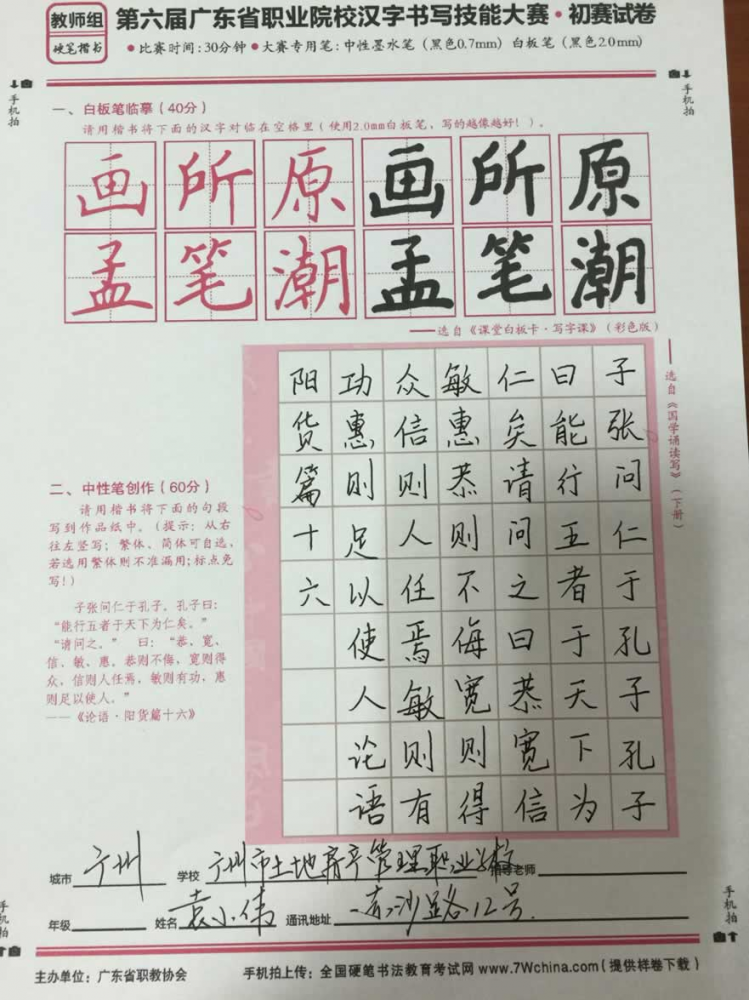 教师组
硬笔楷书
第六届广东省职业院校汉字书写技能大赛·初赛试卷
●比赛时间:30分钟●大赛专用笔:中性墨水笔(黑色0.7mm) 白板笔(黑色2.0mm)
手机拍
手机拍
一、白板笔临摹(40分)
请用楷书将下面的汉字对临在空格里(使用2.0mm白板笔、写的越像越好!)。
画所原画所原
孟笔潮孟笔潮
——选自《课堂白板卡·写字课》(彩色版)
——选自《国学诵读写》(下册)
子张问仁于孔子孔子
曰能行五者于天下为
仁矣请问之曰恭宽信
敏惠恭则不侮宽则得
众信则人任焉敏则有
功惠则足以使人论语
阳货篇十六
二、中性笔创作(60分)
请用楷书将下面的句段
写到作品纸中。(提示:从右
往左竖写;繁体、简体可自选,
若选用繁体则不准漏用;标点免
写!)
子张问仁于孔子。孔子曰:
“能行五者于天下为仁矣。”
“请问之。” 曰:“恭、宽、
信、敏、惠。恭则不侮,宽则得
众,信则人任焉,敏则有功,惠
则足以使人。”
——《论语·阳货篇十六》
城市 广州 学校 广州市土地房产管理职业学校 指导老师
年级 姓名 袁小伟 通讯地址 路12号
手机拍
手机拍
主办单位:广东省职教协会 手机拍上传:全国硬笔书法教育考试网 www.7Wchina.com(提供样卷下载)